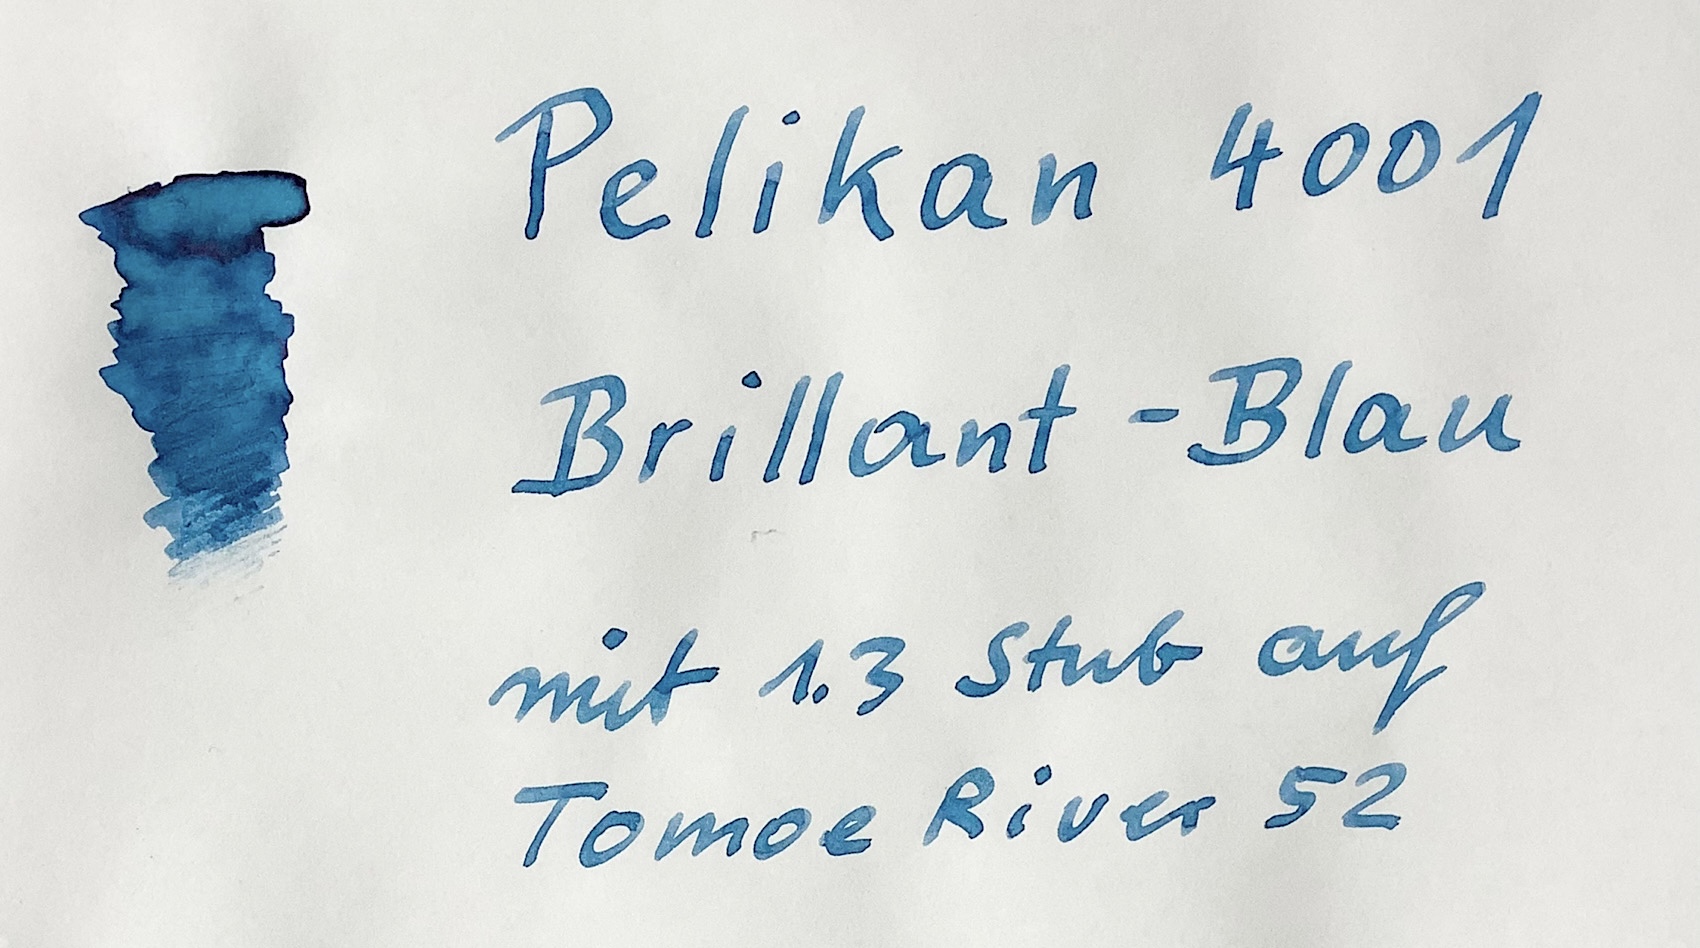 Pelikan 4001
Brillant-Blau
mit 1.3 Stub auf
Tomoe River 52